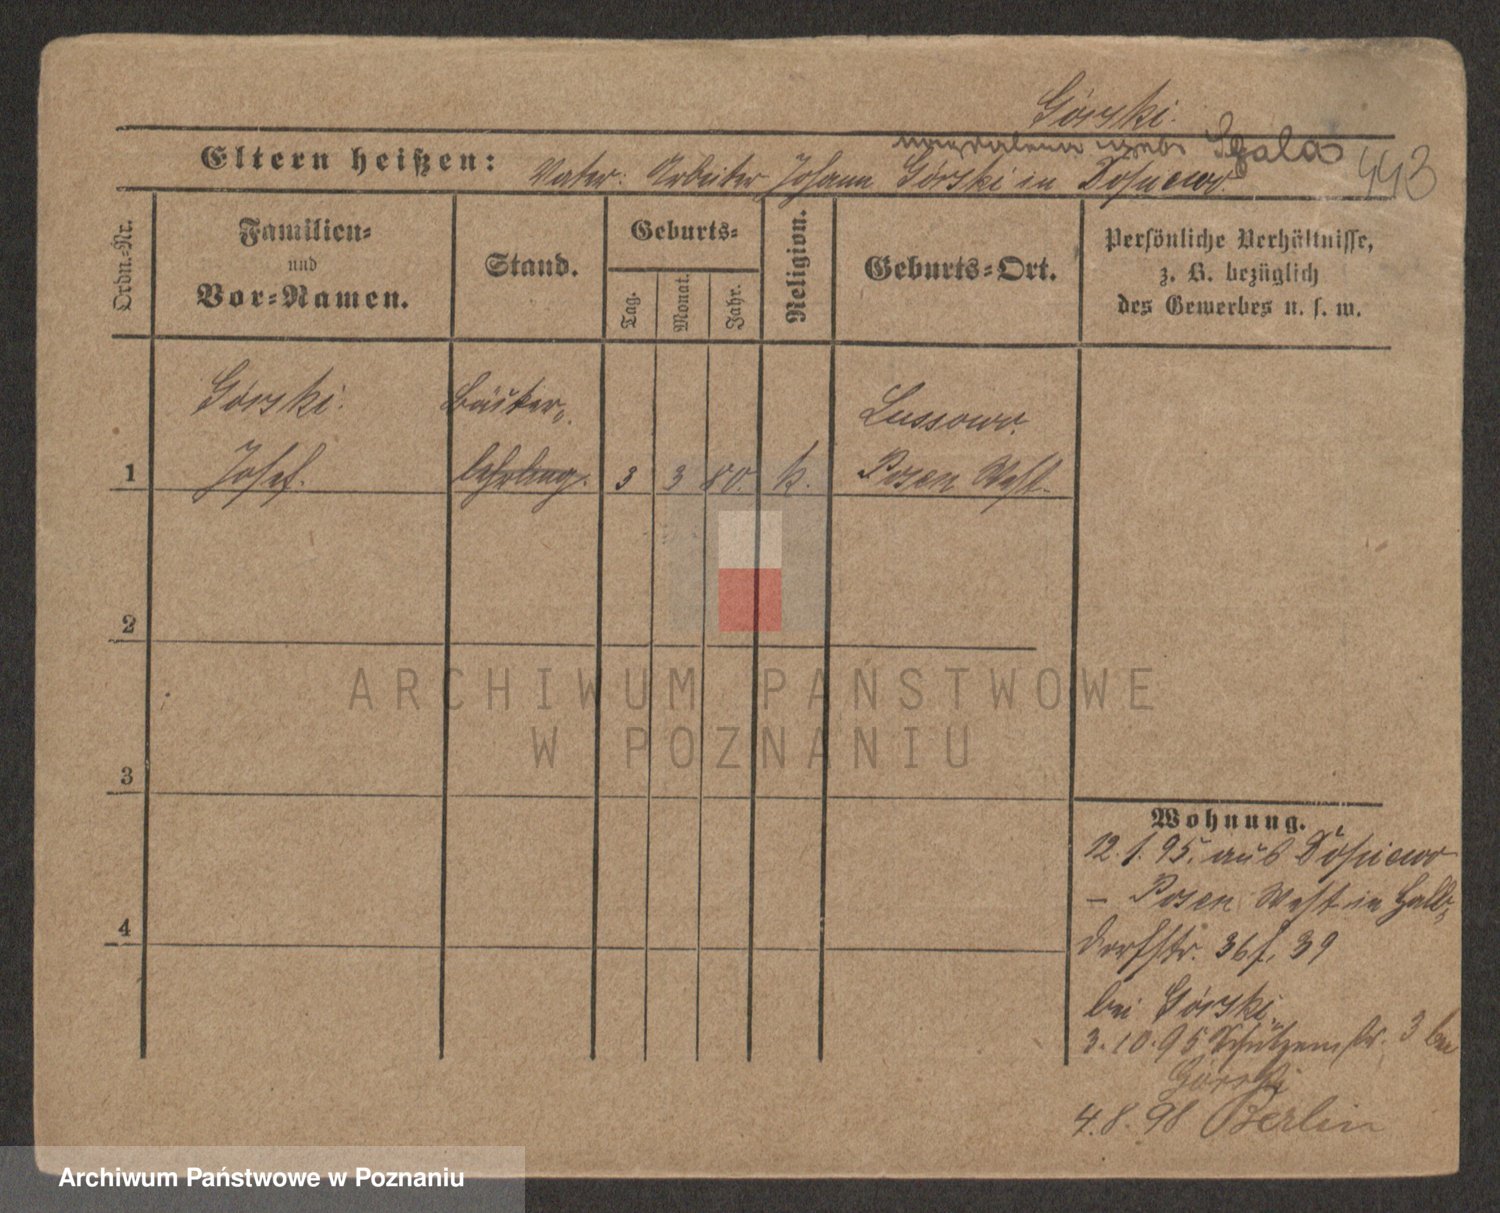 Górski.
Magdalena geb. Sgala
443
Eltern heißen: Vater: Arbeiter Johann Górski in Dopiewo.
Ordn.-Nr.
Familien-
und
Vor-Namen.
Stand.
Geburts-
Tag.
Monat.
Jahr.
Religion.
Geburts-Ort.
Persönliche Verhältnisse,
z. B. bezüglich
des Gewerbes u. s. w.
Górski. Bäcker- Lussowo.
1 Josef. lehrling. 3 3 80. k. Posen West.
2
3
4
Wohnung.
12. 1. 95. aus
– Posen West in Halb-
dorfstr. 36 f. 39
bei Górski.
3. 10. 95 Schützenstr. 3 bei
Górski
4. 8. 98 Berlin
ARCHIWUM PAŃSTWOWE
W POZNANIU
Archiwum Państwowe w Poznaniu